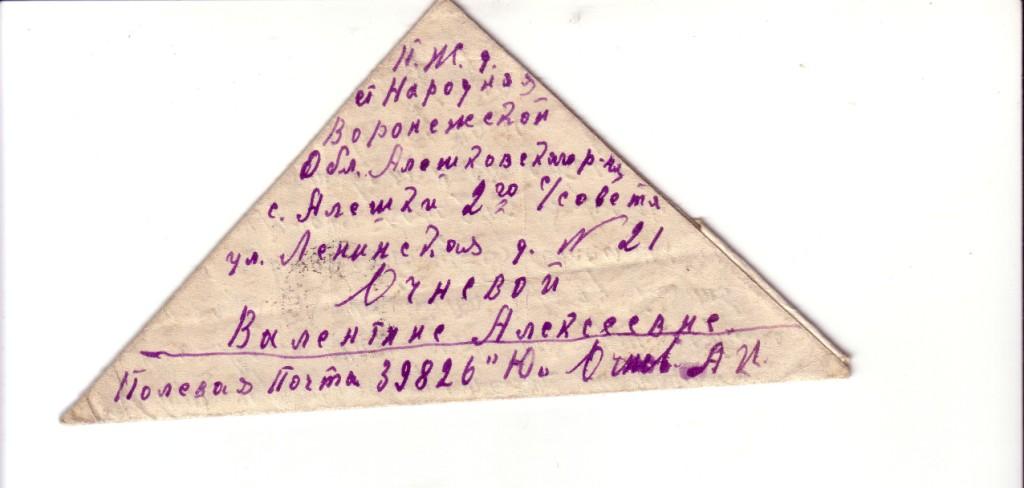 П. Ж. д.
ст Народная
Воронежской
Обл. Алешковского р-на
с. Алешки 2го с/совета
ул. Ленинская д. № 21
Очневой
Валентине Алексеевне.
Полевая Почта 39826 "Ю" Очнев А И.